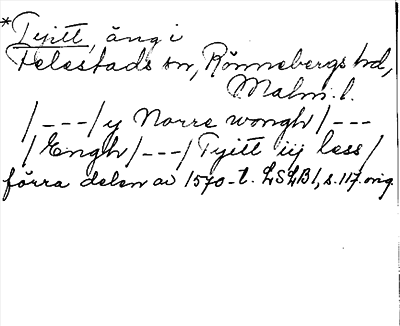 *Tyitt, äng i
Felestads sn, Rönnebergs hd,
Malm. l.
/---/ y Norre wongh /---
/ Engh /---/ Tyitt iij less /
förra delen av 1570-t. LSLB1, s. 117. orig.